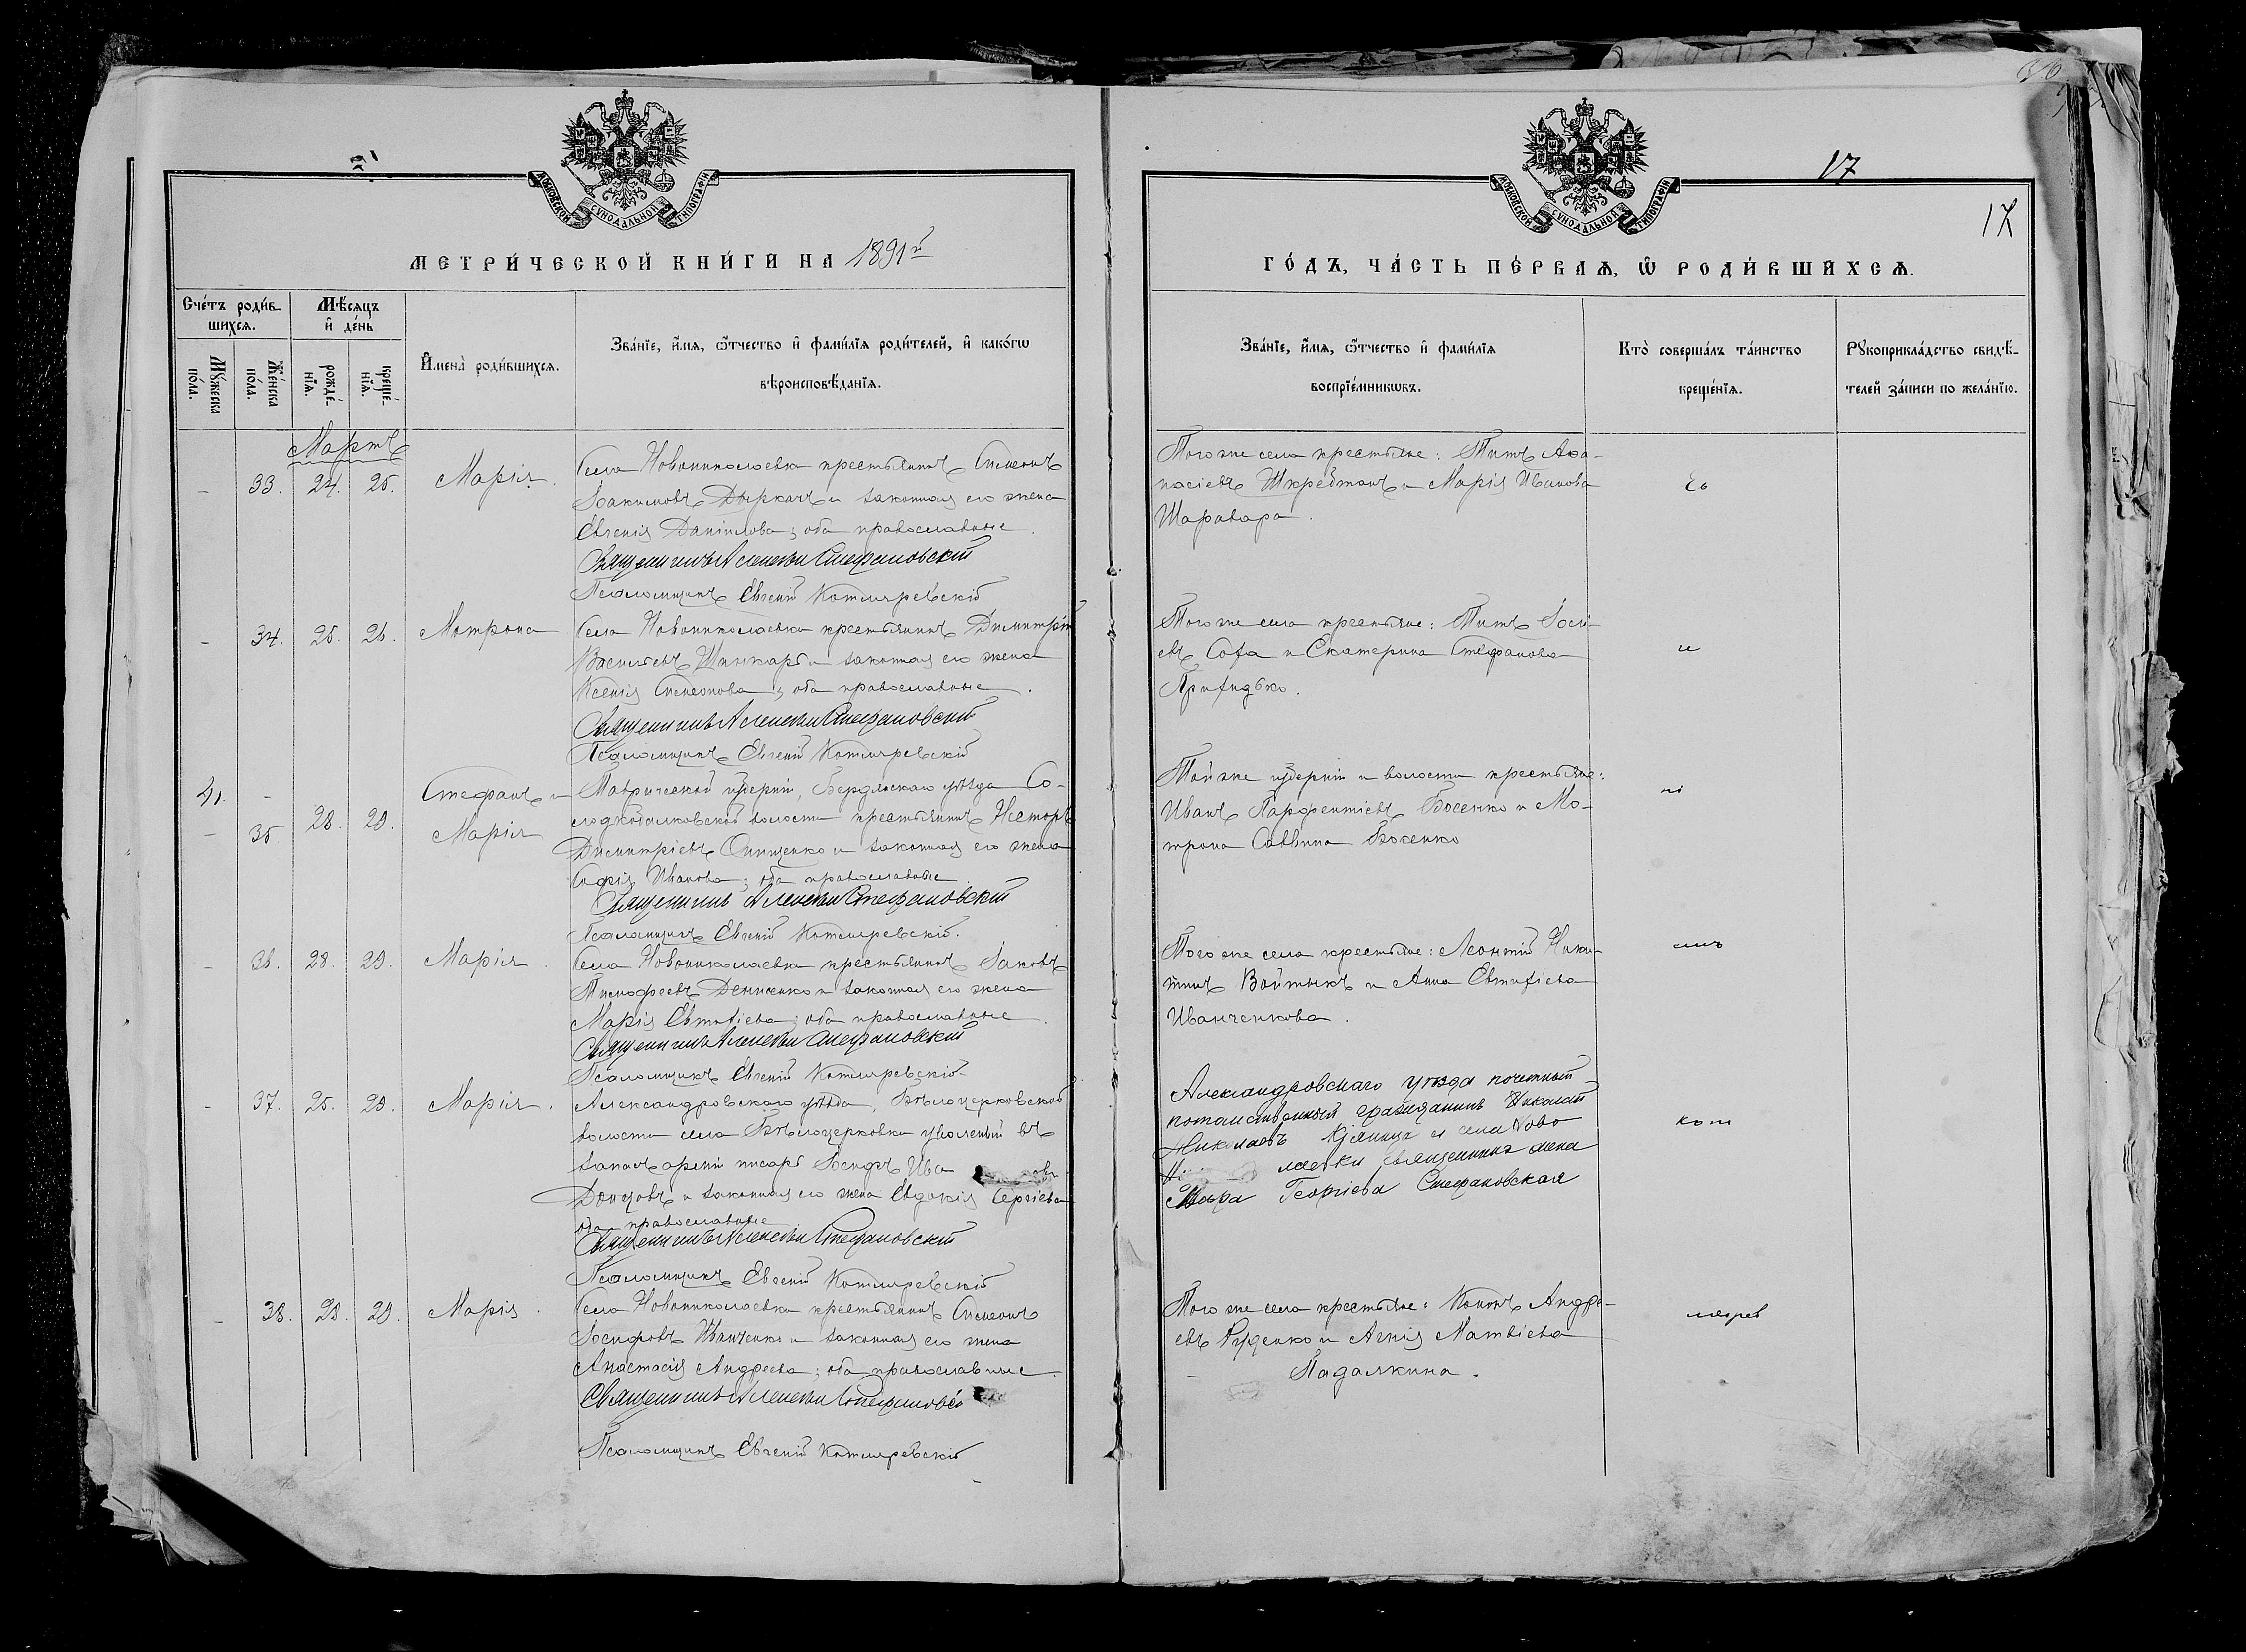 17
17
МОСКОВСКОЙ СѴНОДАЛЬНОЙ ТИПОГРАФІИ
МЕТРИ́ЧЕСКОЙ КНИ́ГИ НА 1891й
Сче́тъ роди́в-
шихся.
Мѣ́сяцъ
и де́нь
Му́жеска
по́ла.
Же́нска
по́ла.
рожде́-
нїя.
креще́-
нїя.
Имена̀ роди́вшихся.
Зва́нїе, и́мя, ѻ҆́тчество и фами́лїя роди́телей, и како́гѡ
вѣроисповѣ́данїя.
Мартъ
- 33. 24. 25. Марія.
Села Новониколаевки крестьянинъ Симеонъ
Іоакимовъ Дыркачъ и законная его жена
Евгенія Даніилова; оба православные.
Священникъ Алексѣй Стефановскій
Псаломщикъ Евгеній Котляревскій
- 34. 25. 26. Матрона
Села Новониколаевки крестьянинъ Димитрій
Васильевъ Шинкарь и законная его жена
Ксенія Симеонова; оба православные.
Священникъ Алексѣй Стефановскій
Псаломщикъ Евгеній Котляревскій
41. -
- 35. 28. 29. Стефанъ и
Марія
Таврической губерніи, Бердянскаго уѣзда Со-
лодкобалковской волости крестьянинъ Несторъ
Димитріевъ Онищенко и законная его жена
Софія Иванова; оба православные
Священникъ Алексѣй Стефановскій
Псаломщикъ Евгеній Котляревскій.
- 36. 28. 29. Марія.
Села Новониколаевки крестьянинъ Іаковъ
Тимофеевъ Денисенко и законная его жена
Марія Евтихіева; оба православные.
Священникъ Алексѣй Стефановскій
Псаломщикъ Евгеній Котляревскій
- 37. 25. 29. Марія.
Александровскаго уѣзда, Бѣлоцерковской
волости села Бѣлоцерковки уволенный въ
запасъ арміи писарь Іосифъ Ива овъ
Донцовъ и законная его жена Евдокія Сергіева
оба православные
Священникъ Алексѣй Стефановскій
Псаломщикъ Евгеній Котляревскій
- 38. 28. 29. Марія.
Села Новониколаевки крестьянинъ Симеонъ
Іосифовъ Иванченко и законная его жена
Анастасія Андреева; оба православные.
Священникъ Алексѣй Стефановс
Псаломщикъ Евгеній Котляревскій
МОСКОВСКОЙ СѴНОДАЛЬНОЙ ТИПОГРАФІИ
ГО́ДЪ, ЧА́СТЬ ПЕ́РВАЯ, Ѡ҆ РОДИ́ВШИХСЯ.
Зва́нїе, и́мя, ѻ҆́тчество и фами́лїя
воспрїе́мникѡвъ.
Кто̀ соверша́лъ та́инство
креще́нїя.
Рукоприкла́дство свидѣ́-
телей за́писи по жела́нїю.
Того же села крестьяне: Титъ Аѳа-
насіевъ Шкребтанъ и Марія Иванова
Шаравара.
Св
Того же села крестьяне: Титъ Іоси-
евъ Сова и Екатерина Стефанова
Притидько.
Той же губерніи и волости крестьяне:
Иванъ Парфентіевъ Босенко и Ма-
трона Саввина Босенко
Того же села крестьяне: Леонтій Ники-
тинъ Войтыкъ и Анна Евтихіева
Иванченкова.
Александровскаго уѣзда почетный
потомственный гражданинъ Николай
Николаевъ и села Ново
лаевки священника жена
Георгіева Стефановская
Кот
Того же села крестьяне: Андре-
евъ Руденко и Агнія Матвіева
- Падалкина.
ляров